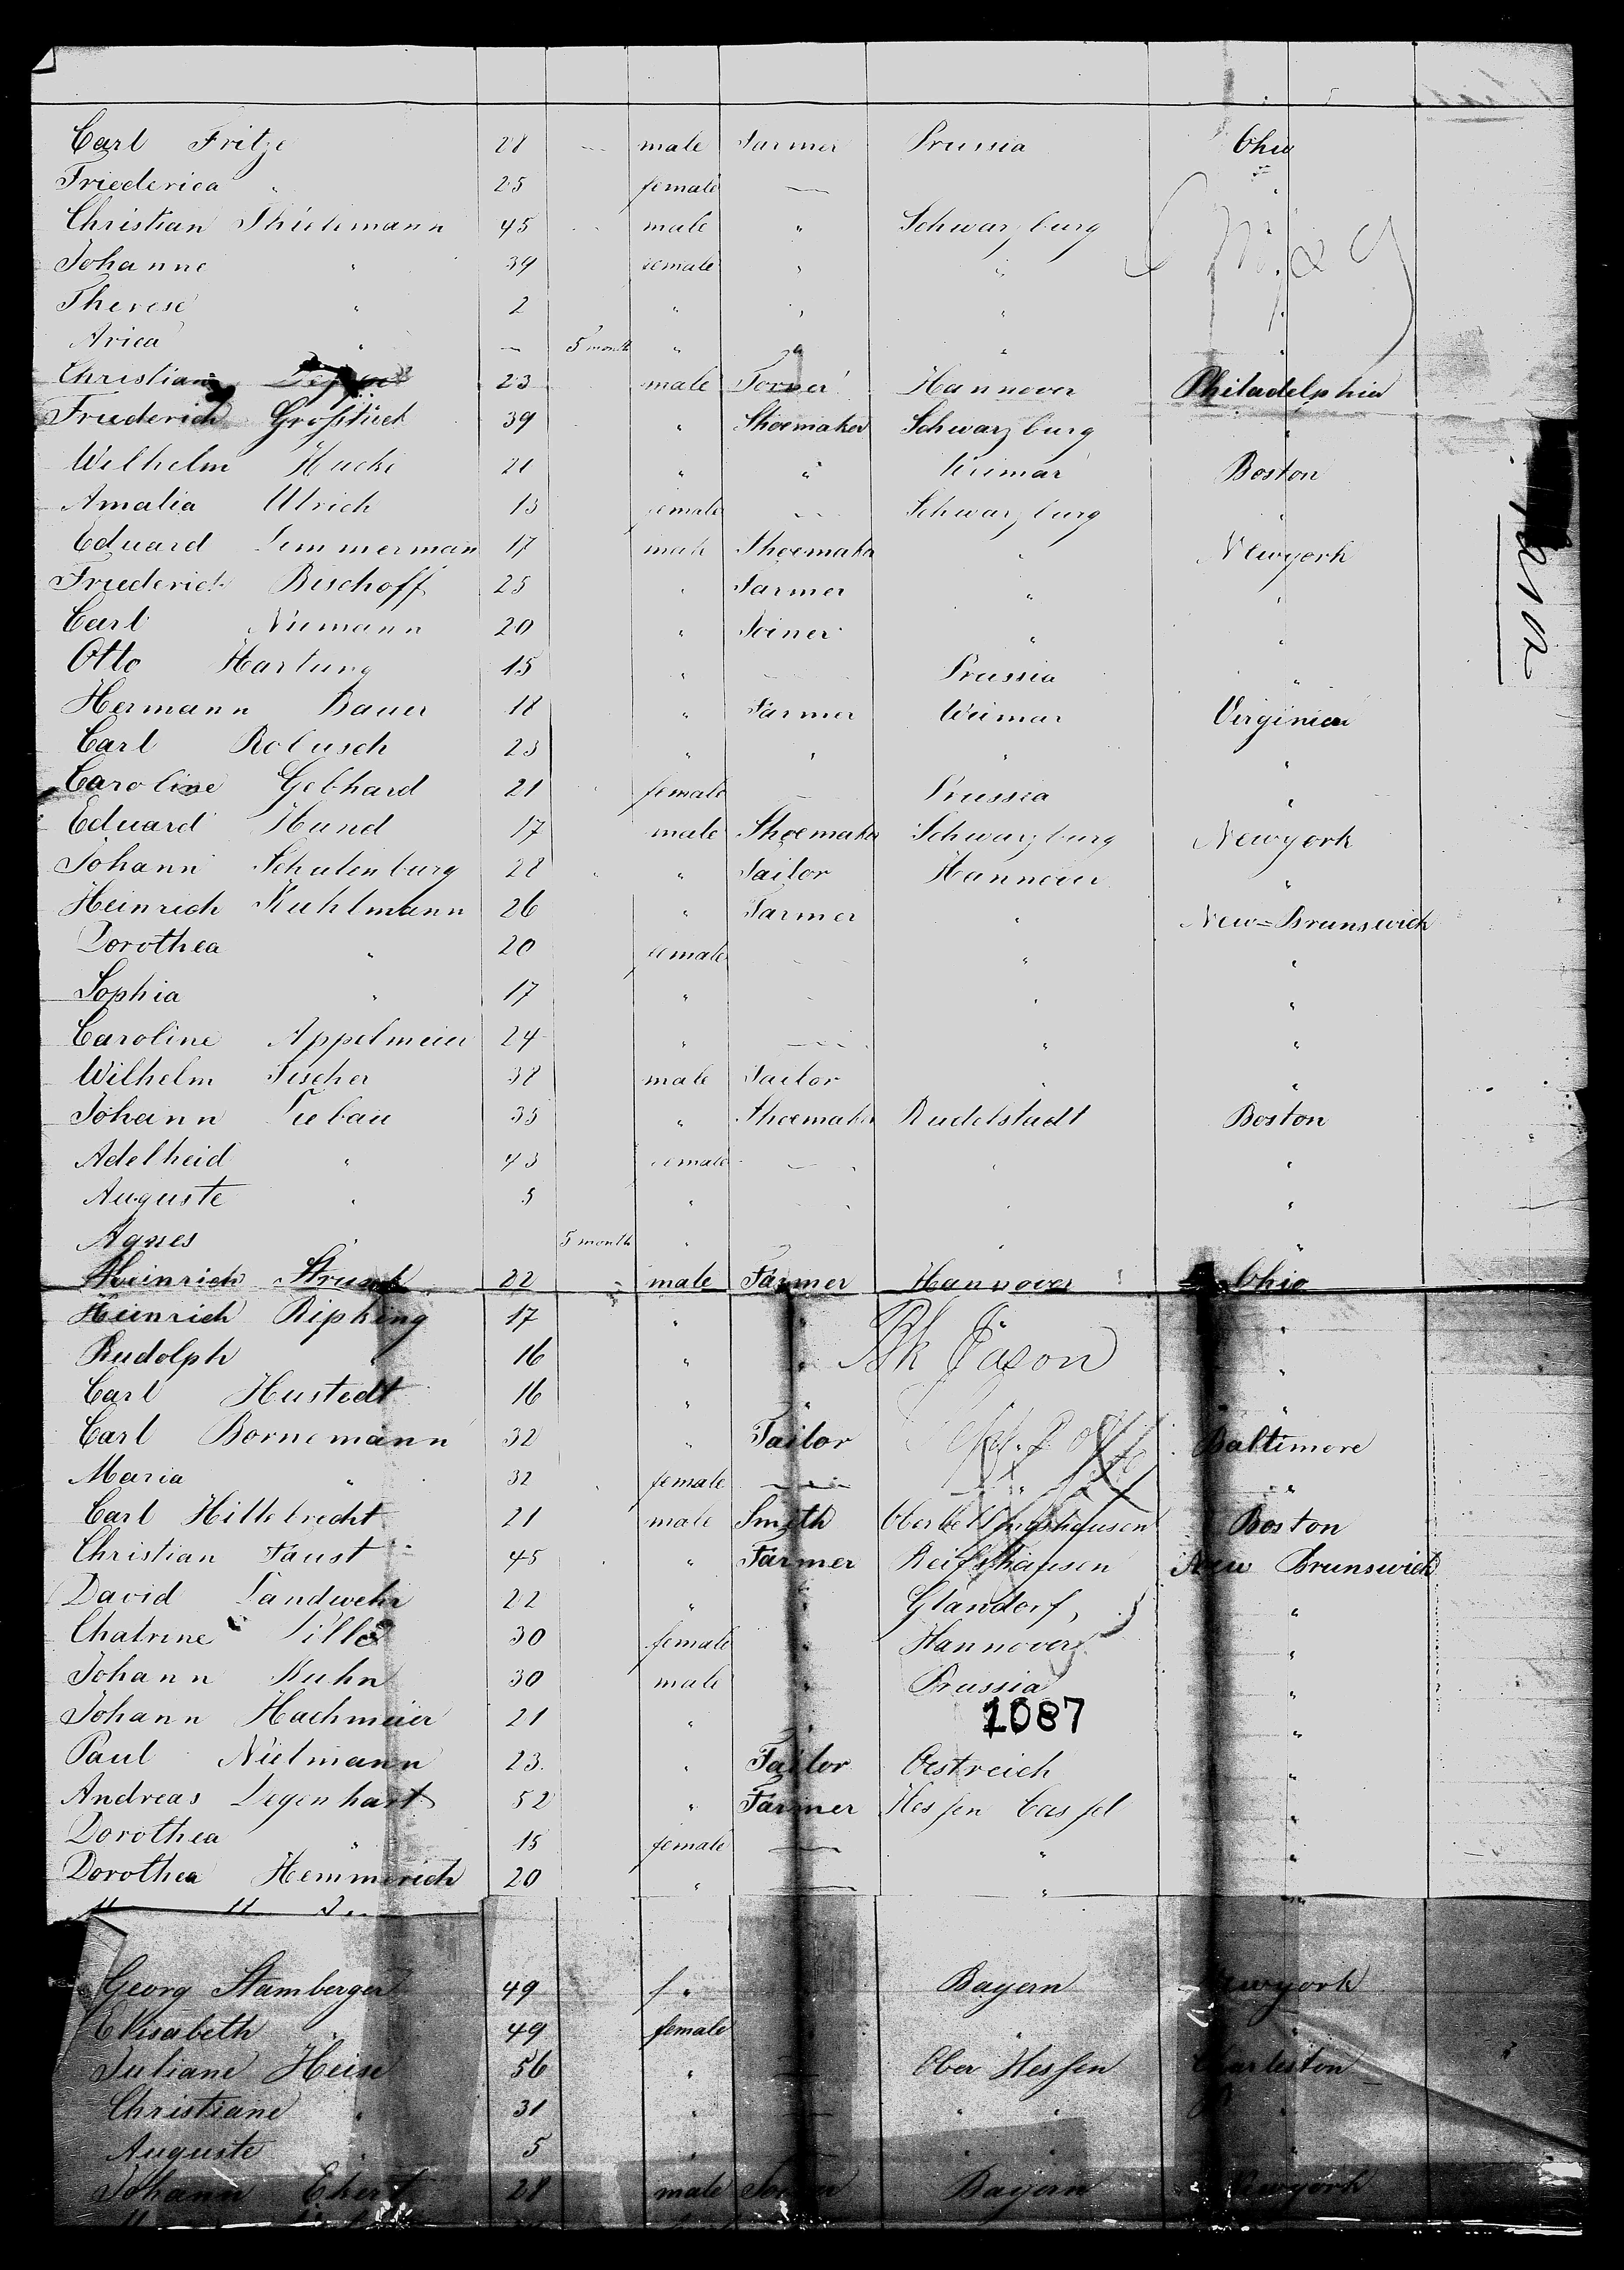 Carl Fritze 28 — male Farmer Prussia Ohio
Friederica " 25 female — "
Christian Thielemann 45 male " Schwarzburg
Johanne " 39 female " "
Therese " 2 " " " "
Arica " — 5 month " " " "
Christian 23 male Hannover Philadelphia
Friederich Großstück 39 " Shoemaker Schwarzburg "
Wilhelm Hucke 21 " " Weimar Boston
Amalia Ulrich 13 female — Schwarzburg "
Eduard Limmerman 17 male Shoemaker " Newyork
Friederich Bischoff 25 " Farmer " "
Carl Niemann 20 " Joiner " "
Otto Hartung 15 " — Prussia "
Hermann Bauer 18 " Farmer Weimar Virginien
Carl Robusch 23 " " " "
Caroline Gebhard 21 female — Prussia "
Eduard Hund 17 male Shoemaker Schwarzburg Newyork
Johann Schulenburg 28 " Tailor Hannover "
Heinrich Kuhlmann 26 " Farmer " New=Brunswich
Dorothea " 20 female — " "
Sophia " 17 " — " "
Caroline Appelmeier 24 " — " "
Wilhelm Fischer 38 male Tailor " "
Johann Liebau 33 " Shoemaker Rudelstadt Boston
Adelheid " 43 female — " "
Auguste " 5 " — " "
Agnes " 5 month " — " "
Heinrich Strunk 22 male Farmer Hannover Ohio
Heinrich Ripking 17 " " "
Rudolph " 16 " " Bk Jason "
Carl Hustedt 16 " " "
Carl Bornemann 32 " Tailor Baltimore
Maria " 32 female — " "
Carl Hillebrecht 21 male Smith Boston
Christian Faust 45 " Farmer Reiffshausen New Brunswich
David Landwehr 22 " " Glandorf, "
Chatrine Lille 30 female " Hannover "
Johann Kuhn 30 male " Prussia "
1087
Johann Hachmeier 21 " " "
Paul Nielmann 23. " Tailor Oestreich "
Andreas Degenhart 52 " Farmer Hessen Cassel "
Dorothea " 15 female — " "
Dorothea Hemmerich 20 " — " "
Georg Stamberger 49 " Bayern Newyork
Elisabeth " 49 female " "
Juliane Heise 56 " — Ober Hessen Charleston
Christiane " 31 " — " " "
Auguste " 5 " — " " "
Johann Ekert 28 male Bayern Newyork